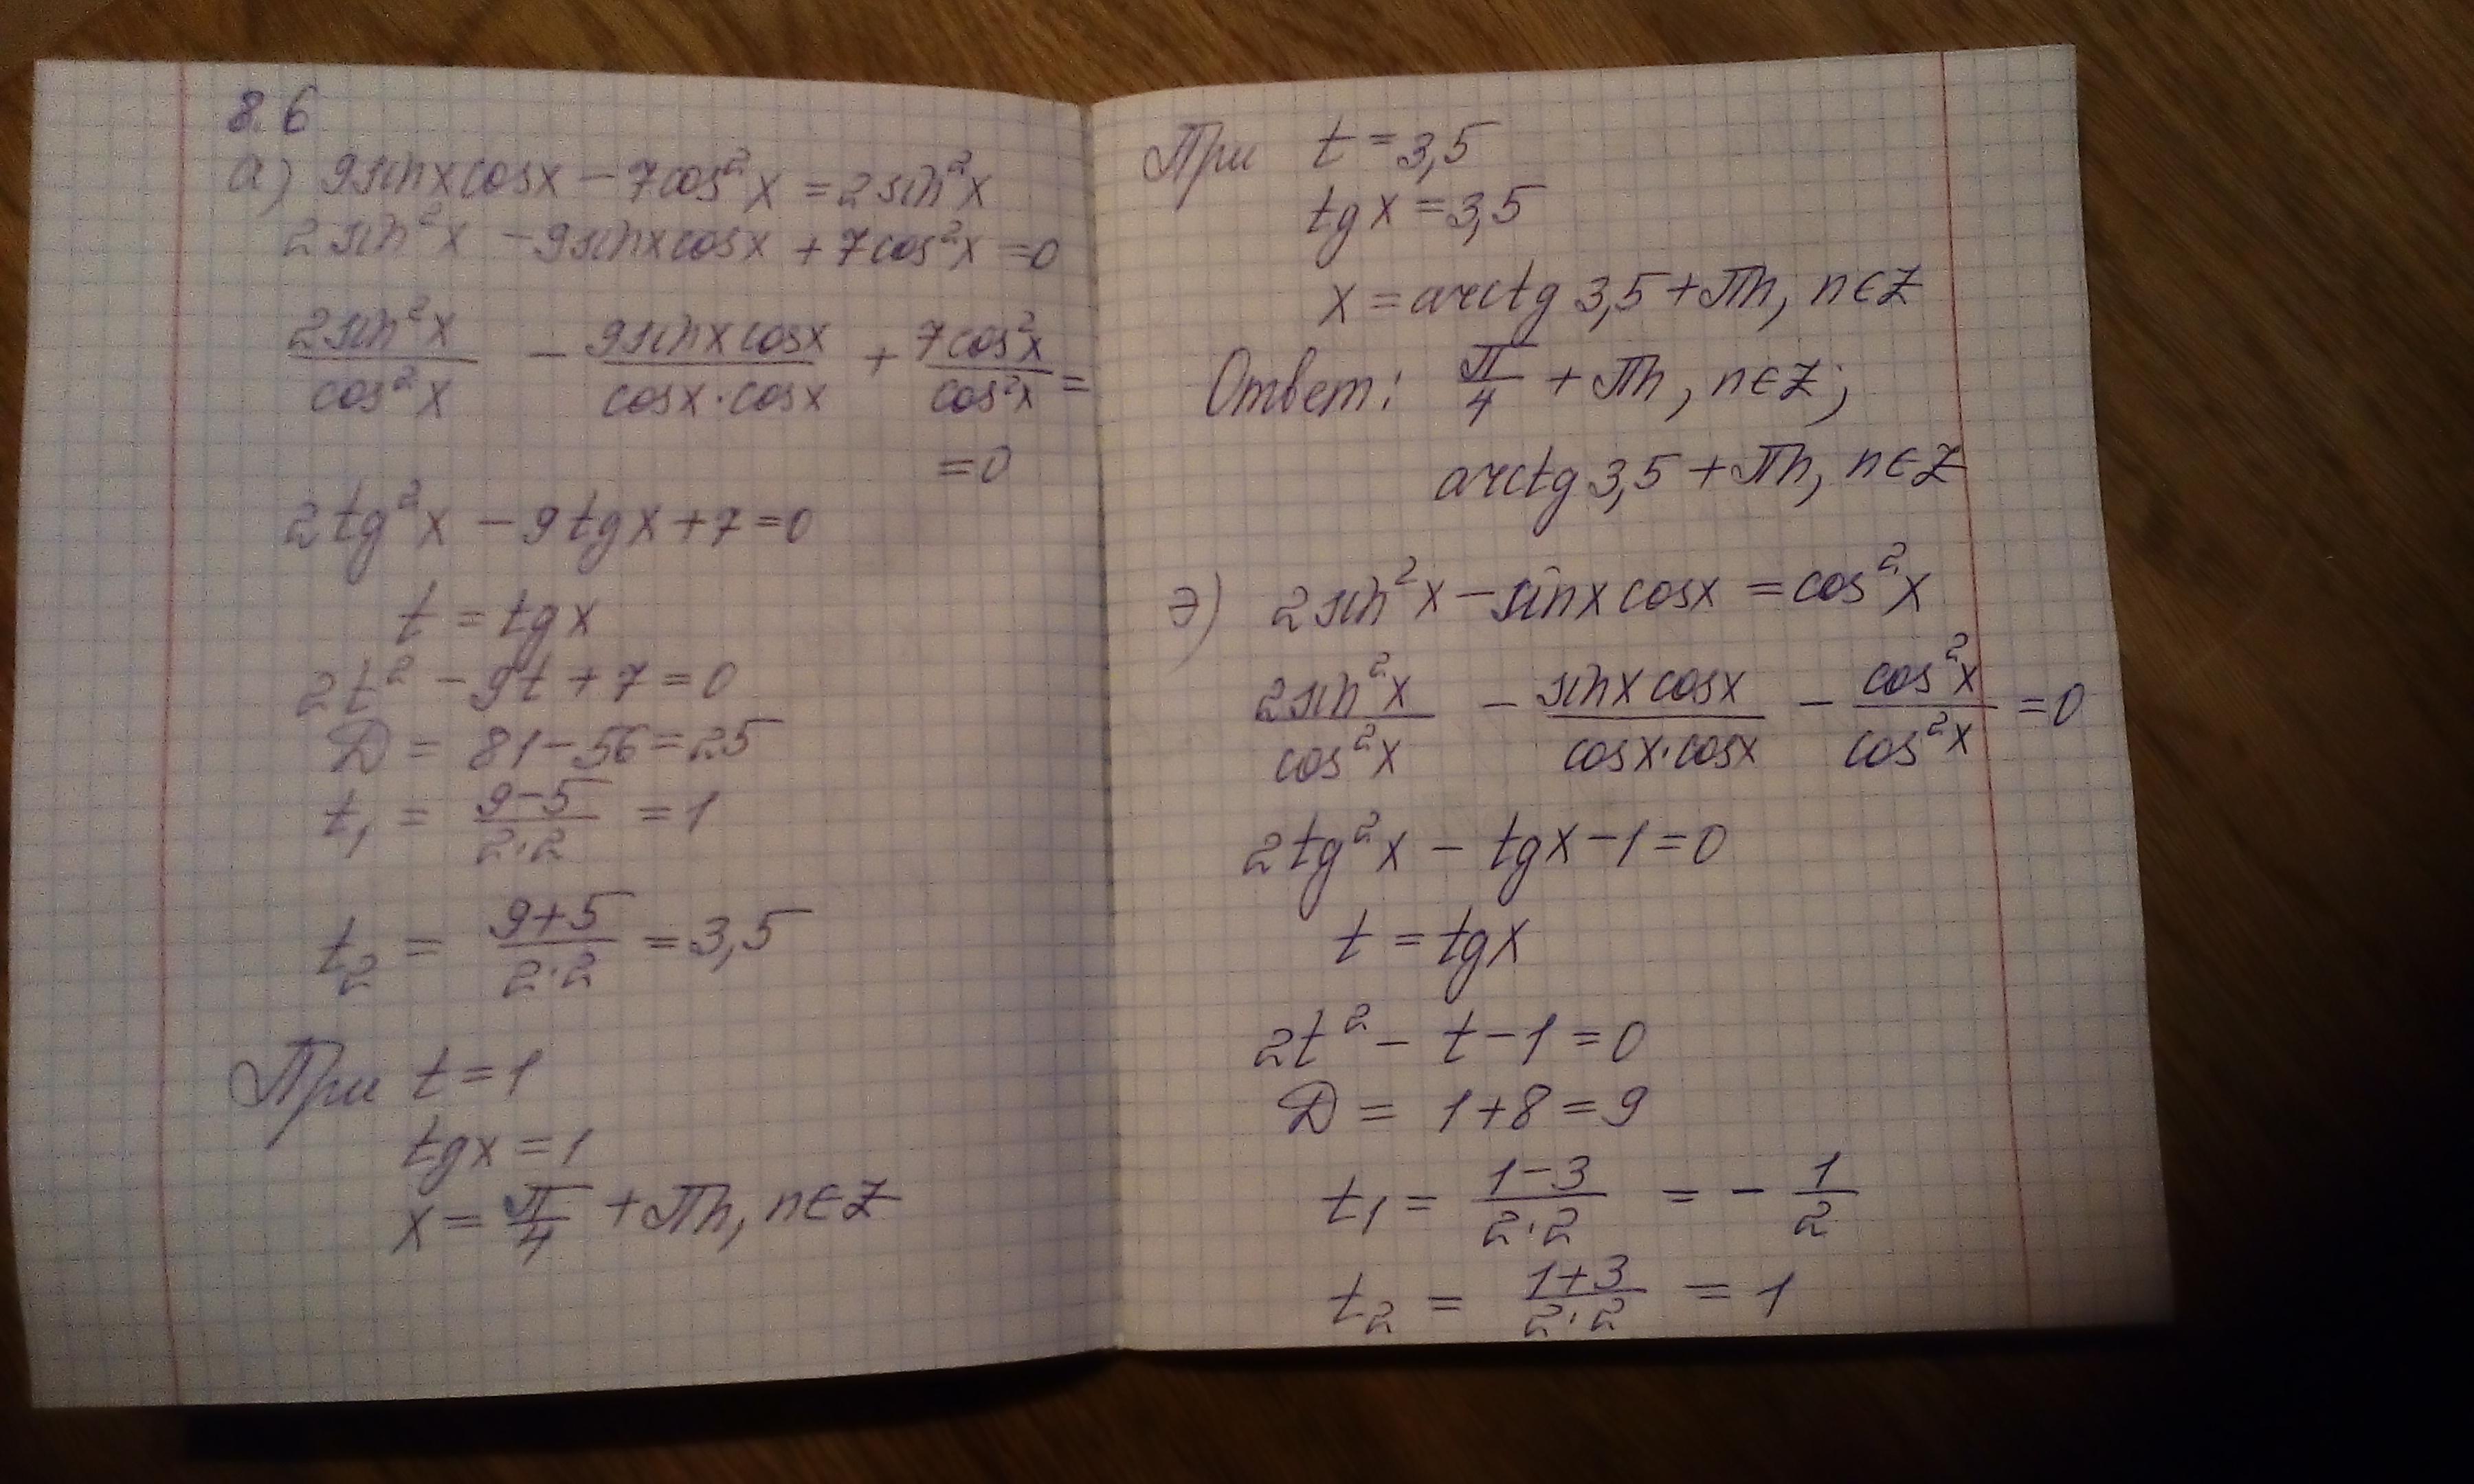 8.6
а) 9sinxcosx − 7cos²x = 2sin²x
2sin²x − 9sinxcosx + 7cos²x = 0
2sin²x/cos²x − 9sinxcosx/cosx·cosx + 7cos²x/cos²x =
= 0
2tg²x − 9tgx + 7 = 0
t = tgx
2t² − 9t + 7 = 0
D = 81 − 56 = 25
t₁ = 9−5/2·2 = 1
t₂ = 9+5/2·2 = 3,5
При t = 1
tgx = 1
x = π/4 + πn, n∈Z
При t = 3,5
tgx = 3,5
x = arctg 3,5 + πn, n∈Z
Ответ: π/4 + πn, n∈Z;
arctg 3,5 + πn, n∈Z
э) 2sin²x − sinxcosx = cos²x
2sin²x/cos²x − sinxcosx/cosx·cosx − cos²x/cos²x = 0
2tg²x − tgx − 1 = 0
t = tgx
2t² − t − 1 = 0
D = 1 + 8 = 9
t₁ = 1−3/2·2 = − 1/2
t₂ = 1+3/2·2 = 1